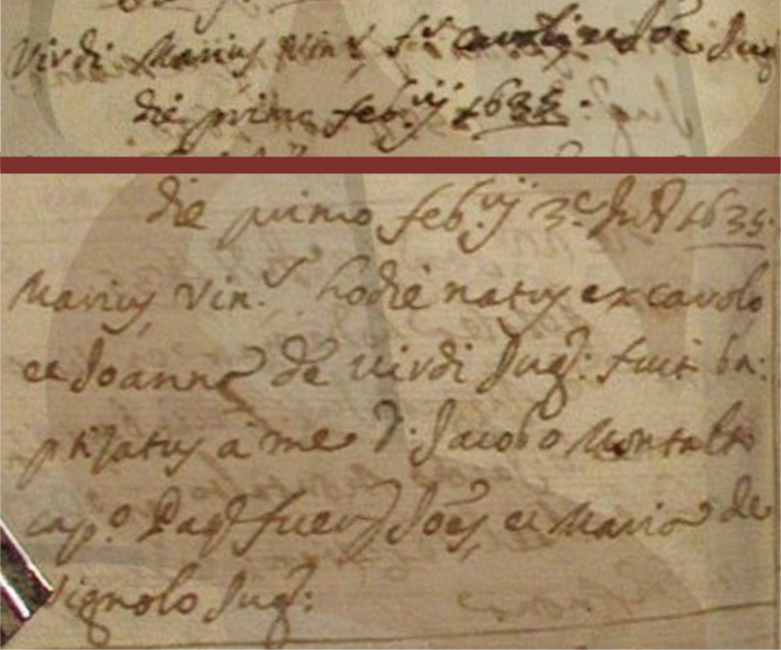 Virdi Marius Vin.s f. Caroli et Joe Jug
die primo feb.rij 1635.
die primo feb.rij 3.e Ind. 1635.
Marius Vin.s hodie natus ex carolo
et Joanna de Virdi Jug: fuit ba:
ptizatus à me D. Jacobo Montalto
cap.o Pat fuer Joes et Maria de
Vignolo Jug: